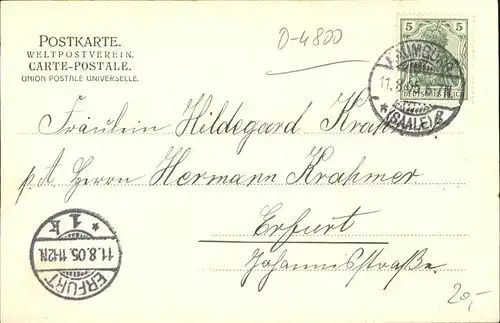 D-4800
POSTKARTE.
WELTPOSTVEREIN.
CARTE-POSTALE.
UNION POSTALE UNIVERSELLE.
5 5
DEUTSCHES REICH
NAUMBURG
11.8.05
* (SAALE)
Fräulein Hildegard Krahmer
p. A Herrn Hermann Krahmer.
Erfurt
Johannisstraße.
ERFURT
11.8.05.11-12N.
* 1 k *
20,-